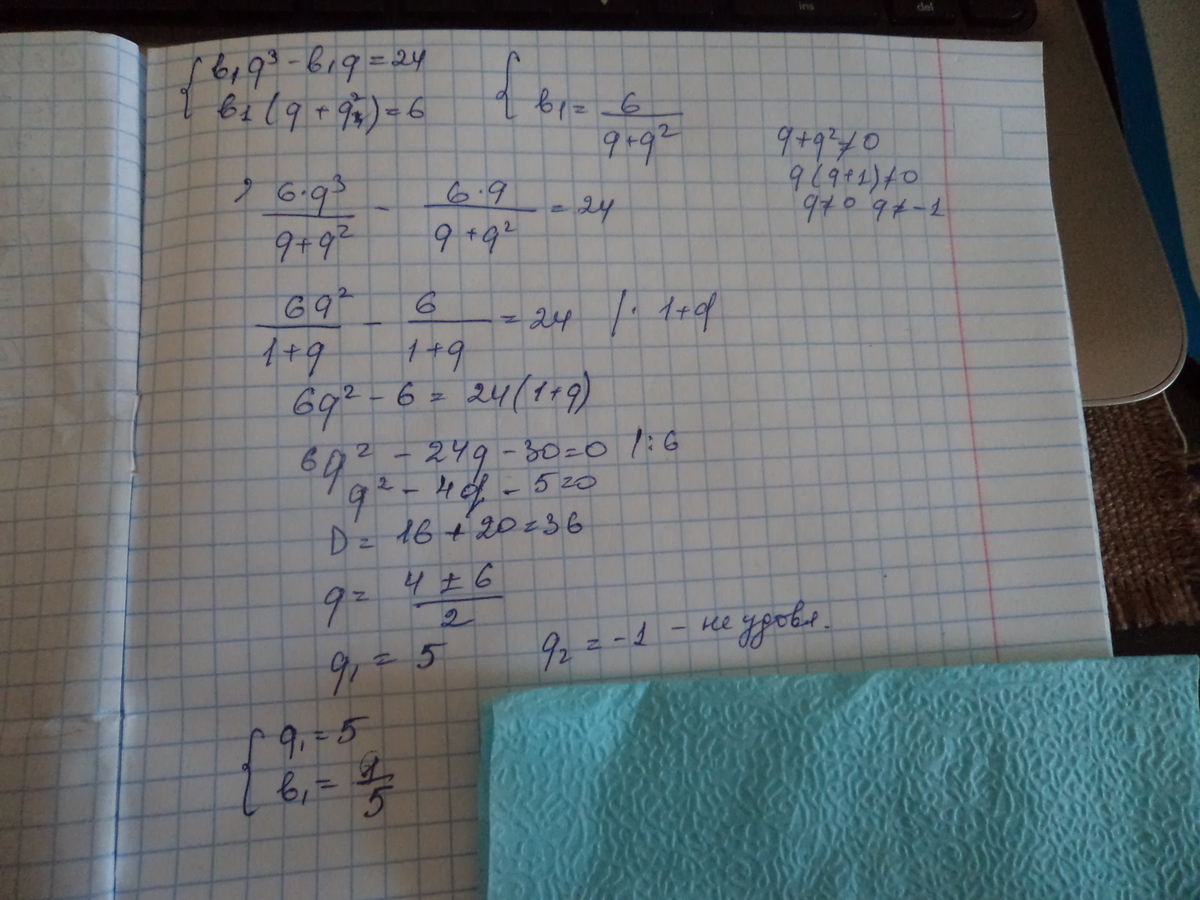 { b₁q³ - b₁q = 24
b1(q + q²) = 6
{ b₁ = 6/(q+q²)
q+q² ≠ 0
q(q+1) ≠ 0
q ≠ 0 q ≠ -1
6·q³/(q+q²) - 6·q/(q+q²) = 24
6q²/(1+q) - 6/(1+q) = 24 /· 1+q
6q² - 6 = 24(1+q)
6q² - 24q - 30 = 0 /:6
q² - 4q - 5 = 0
D = 16 + 20 = 36
q = (4 ± 6)/2
q₁ = 5 q₂ = -1 - не удовл.
{ q₁ = 5
b₁ = 1/5
ins
del